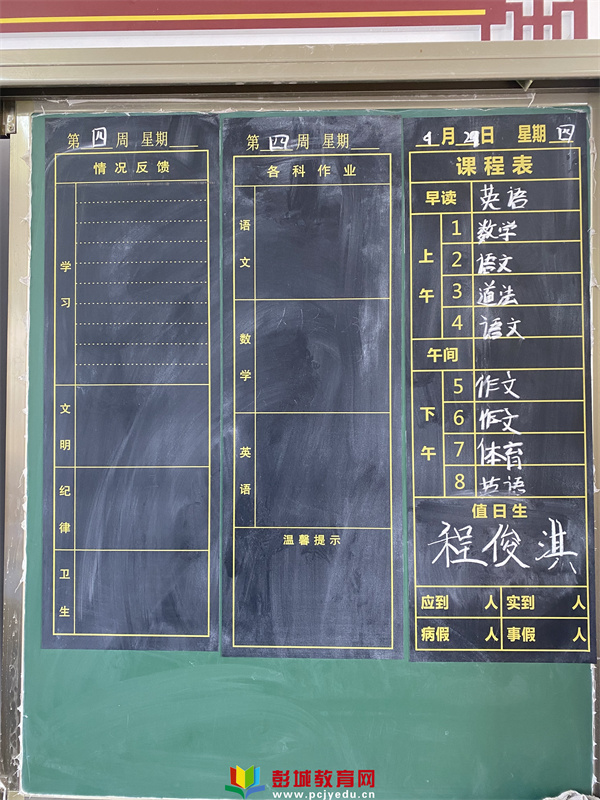 第四周 星期
情况反馈
学习
文明
纪律
卫生
第四周 星期
各科作业
语文
数学
英语
温馨提示
4月29日 星期四
课程表
早读 英语
上午
1 数学
2 语文
3 道法
4 语文
午间
下午
5 作文
6 作文
7 体育
8 英语
值日生
程俊淇
应到 人 实到 人
病假 人 事假 人
彭城教育网
www.pcjyedu.cn